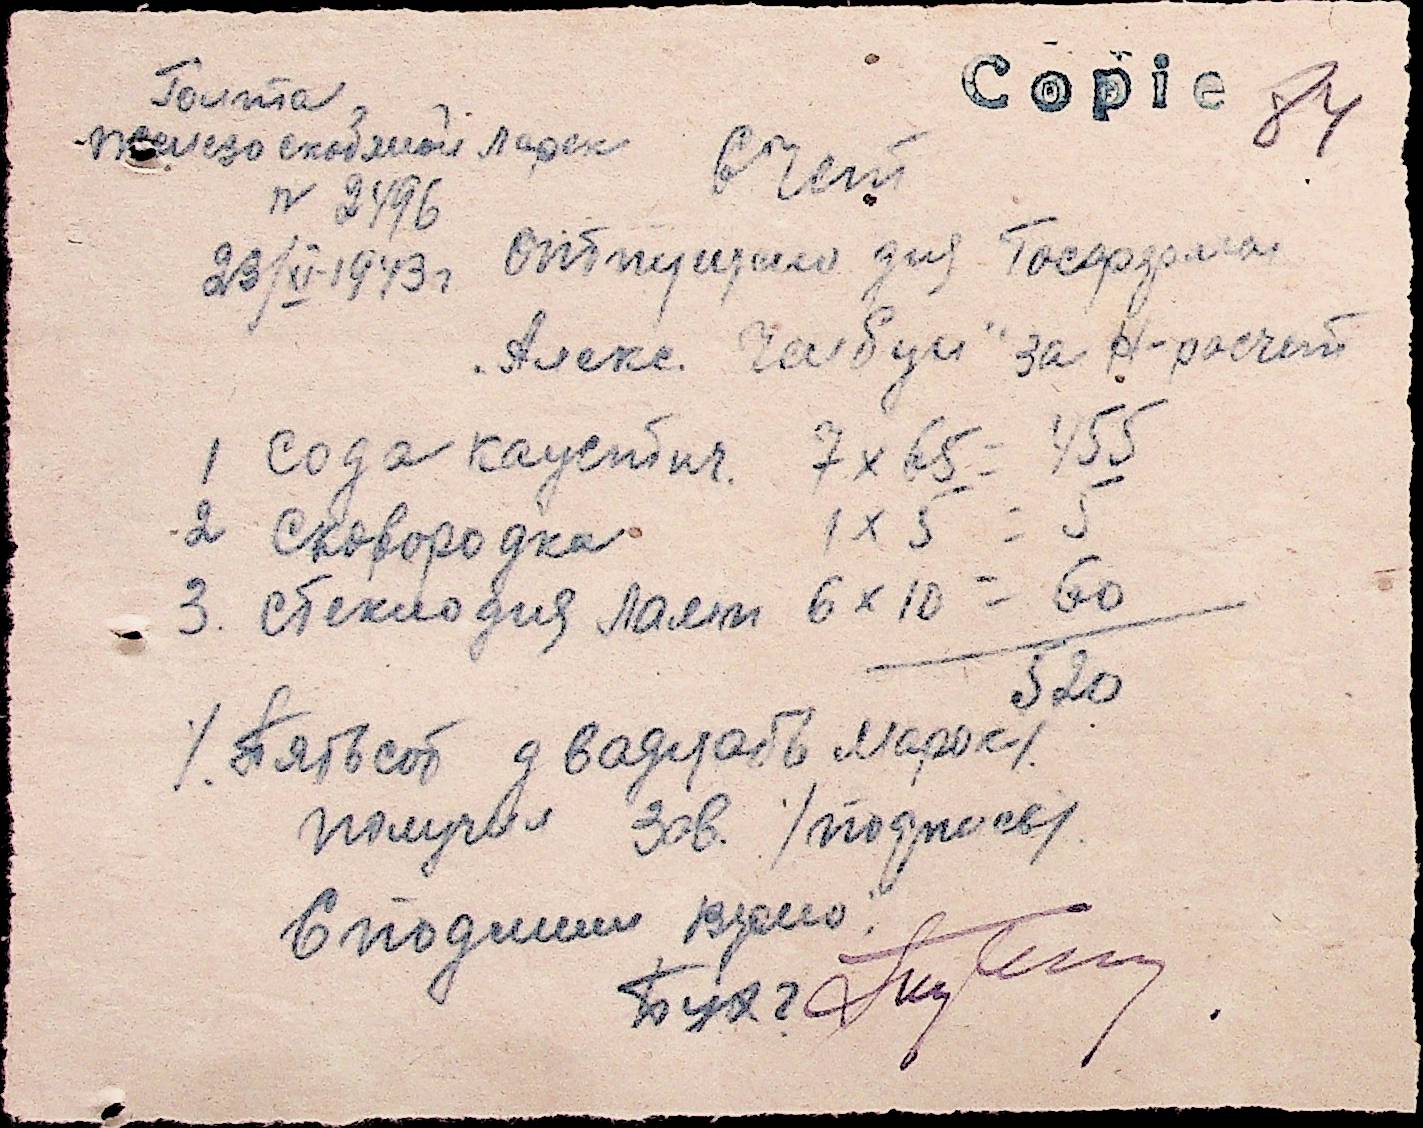 Copie 84
Голта
Железо скобяной ларек
Счет
№ 2496
23/XI-1943г Отпущено для
„Алекс. за Н-расчет
1 Сода каустич. 7 x 65 = 455
2 Сковородка 1 x 5 = 5
3. Стекло для ламп 6 x 10 = 60
520
/. Пятьсот двадцать марок/.
получил Зав. /подпись/.
С подлинн верно".
Бухг